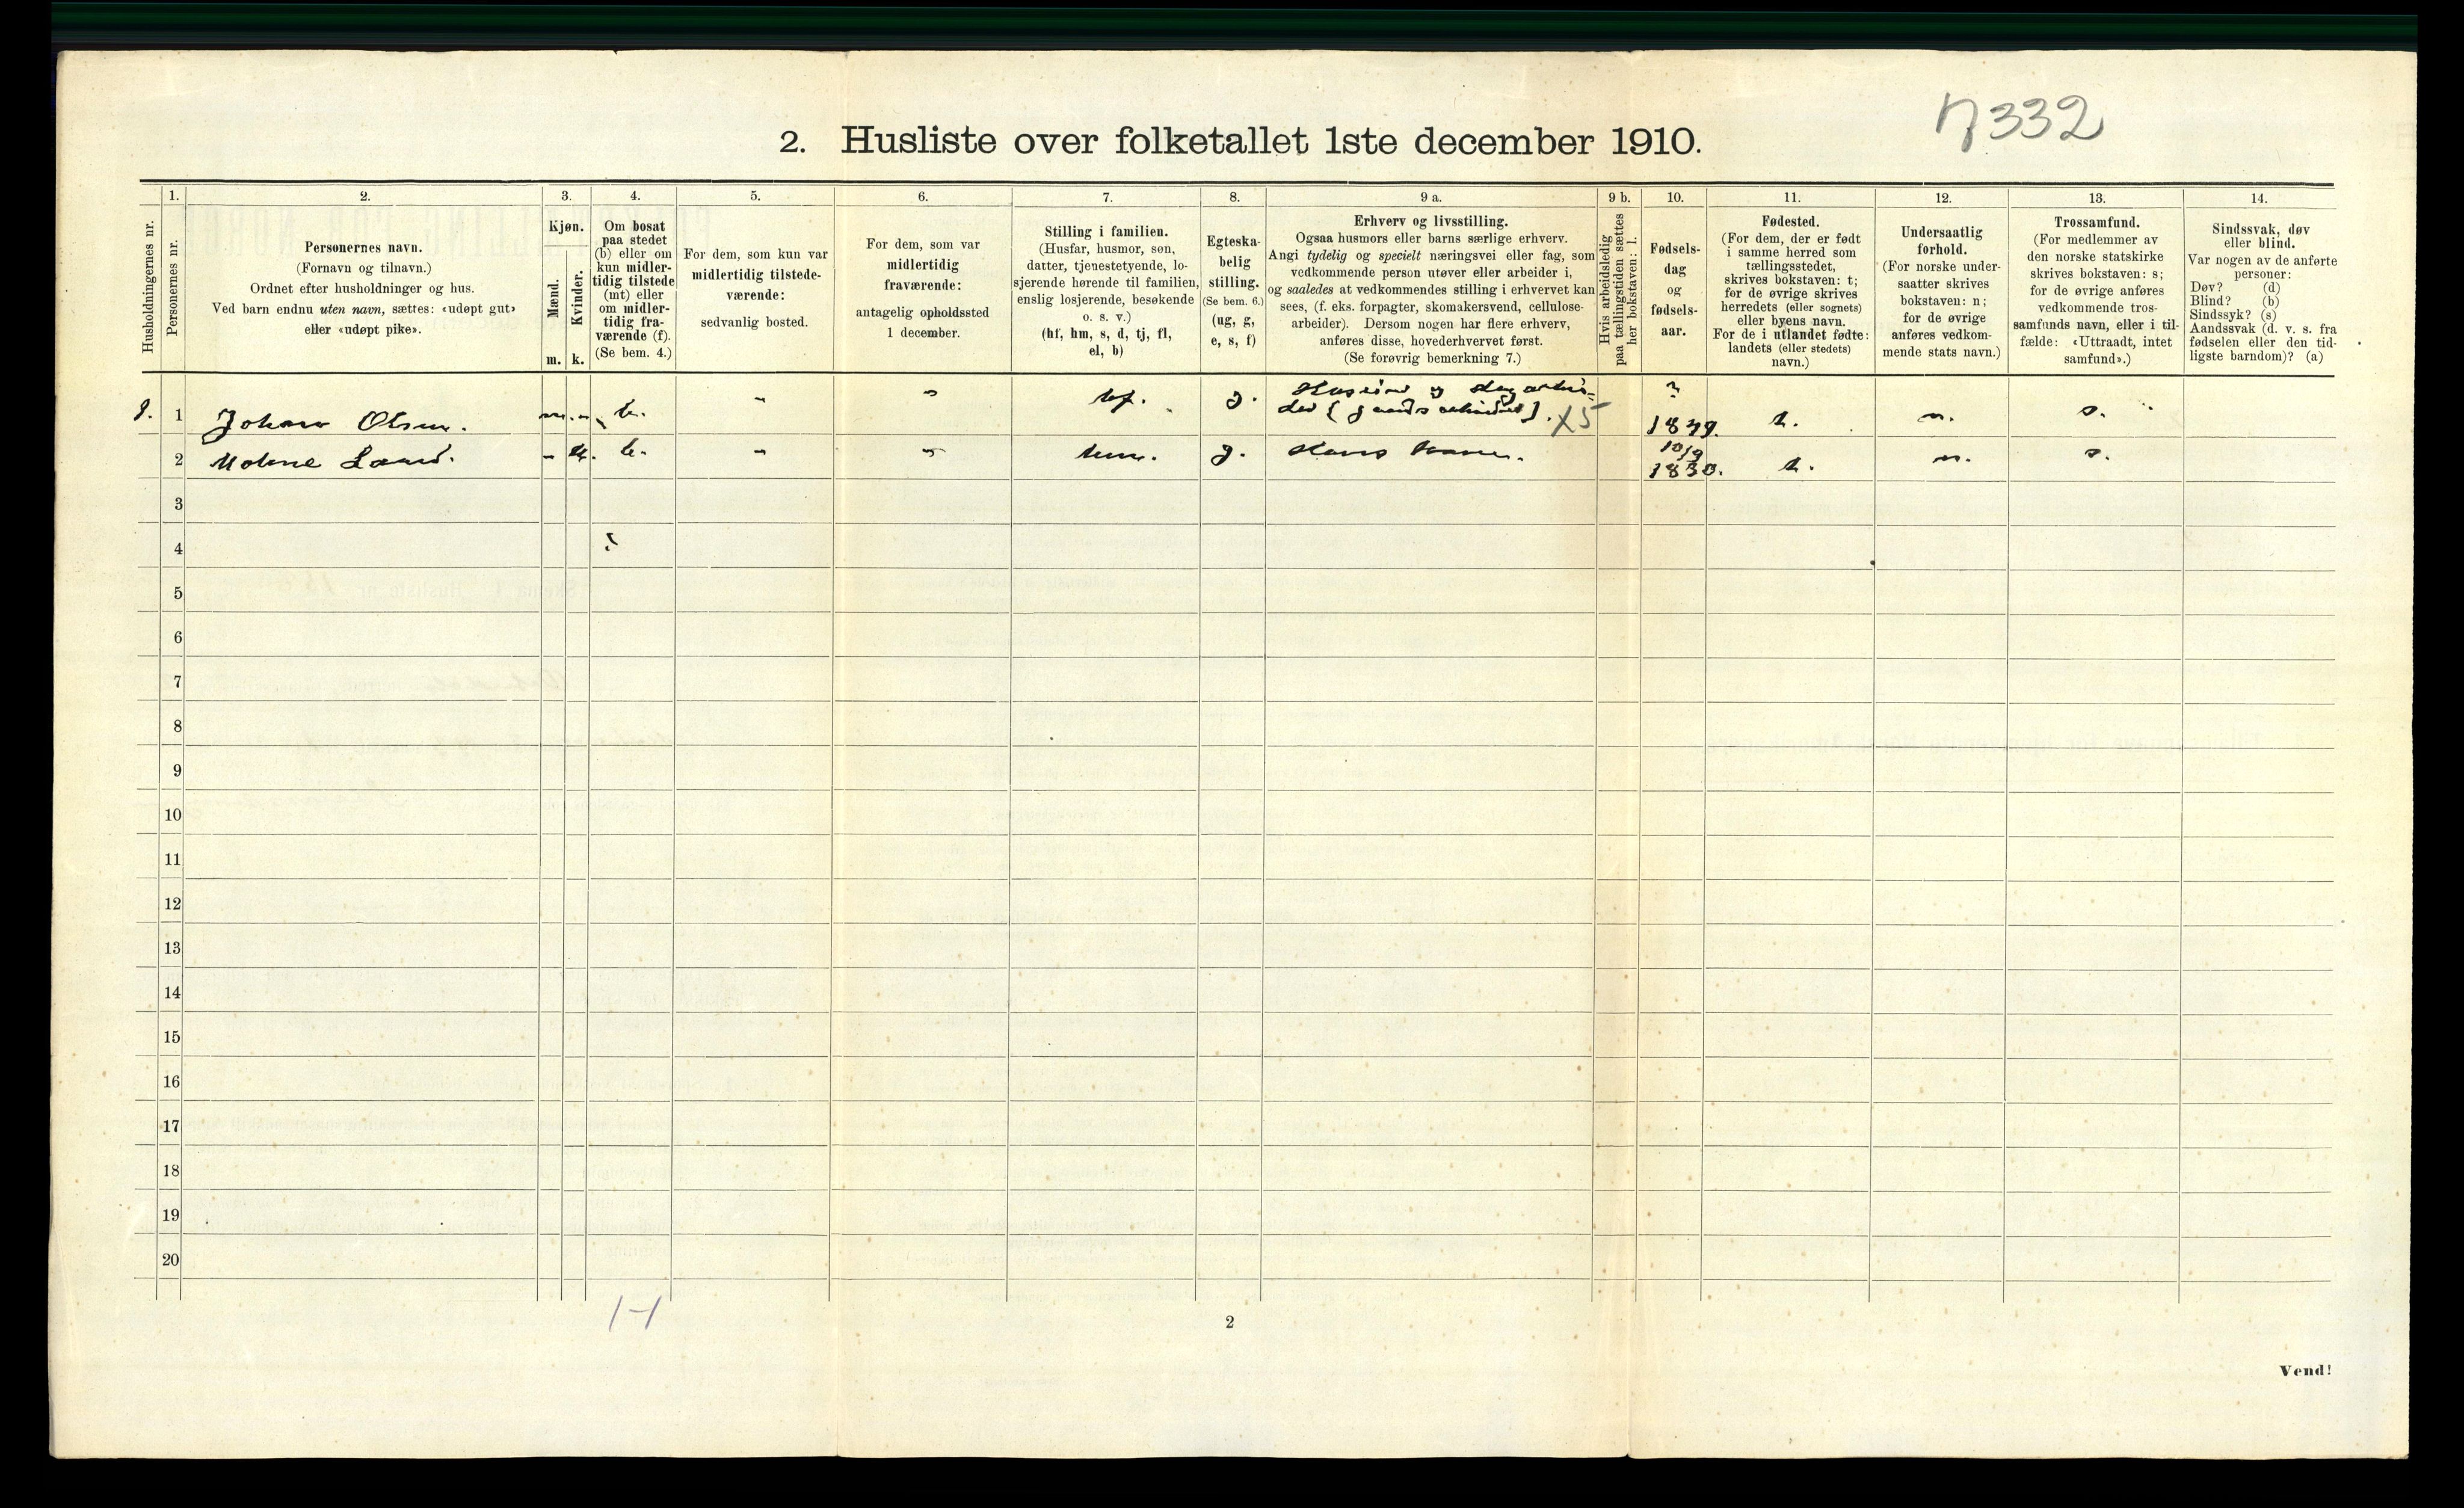 n 332
2. Husliste over folketallet 1ste december 1910.
Husholdningernes nr.
1.
Personernes nr.
2.
Personernes navn.
(Fornavn og tilnavn.)
Ordnet efter husholdninger og hus.
Ved barn endnu uten navn, sættes: «udøpt gut»
eller «udøpt pike».
3.
Kjøn.
Mænd.
m.
Kvinder.
k.
4.
Om bosat
paa stedet
(b) eller om
kun midler-
tidig tilstede
(mt) eller
om midler-
tidig fra-
værende (f).
(Se bem. 4.)
5.
For dem, som kun var
midlertidig tilstede-
værende:
sedvanlig bosted.
6.
For dem, som var
midlertidig
fraværende:
antagelig opholdssted
1 december.
7.
Stilling i familien.
(Husfar, husmor, søn,
datter, tjenestetyende, lo-
sjerende hørende til familien,
enslig losjerende, besøkende
o. s. v.)
(hf, hm, s, d, tj, fl,
el, b)
8.
Egteska-
belig
stilling.
(Se bem. 6.)
(ug, g,
e, s, f)
9 a.
Erhverv og livsstilling.
Ogsaa husmors eller barns særlige erhverv.
Angi tydelig og specielt næringsvei eller fag, som
vedkommende person utøver eller arbeider i,
og saaledes at vedkommendes stilling i erhvervet kan
sees, (f. eks. forpagter, skomakersvend, cellulose-
arbeider). Dersom nogen har flere erhverv,
anføres disse, hovederhvervet først.
(Se forøvrig bemerkning 7.)
9 b.
Hvis arbeidsledig
paa tællingstiden sættes
her bokstaven: l.
10.
Fødsels-
dag
og
fødsels-
aar.
11.
Fødested.
(For dem, der er født
i samme herred som
tællingsstedet,
skrives bokstaven: t;
for de øvrige skrives
herredets (eller sognets)
eller byens navn.
For de i utlandet fødte:
landets (eller stedets)
navn.)
12.
Undersaatlig
forhold.
(For norske under-
saatter skrives
bokstaven: n;
for de øvrige
anføres vedkom-
mende stats navn.)
13.
Trossamfund.
(For medlemmer av
den norske statskirke
skrives bokstaven: s;
for de øvrige anføres
vedkommende tros-
samfunds navn, eller i til-
fælde: «Uttraadt, intet
samfund».)
14.
Sindssvak, døv
eller blind.
Var nogen av de anførte
personer:
Døv? (d)
Blind? (b)
Sindssyk? (s)
Aandssvak (d. v. s. fra
fødselen eller den tid-
ligste barndom)? (a)
1. 1 Johan Olsen. m. - b. - - hf. g. X5 ? t. n. s.
2 - k. b. - - hm. g. Hans kone. 10/9 1830. t. n. s.
3
4
5
6
7
8
9
10
11
12
13
14
15
16
17
18
19
20
1-1
2
Vend!